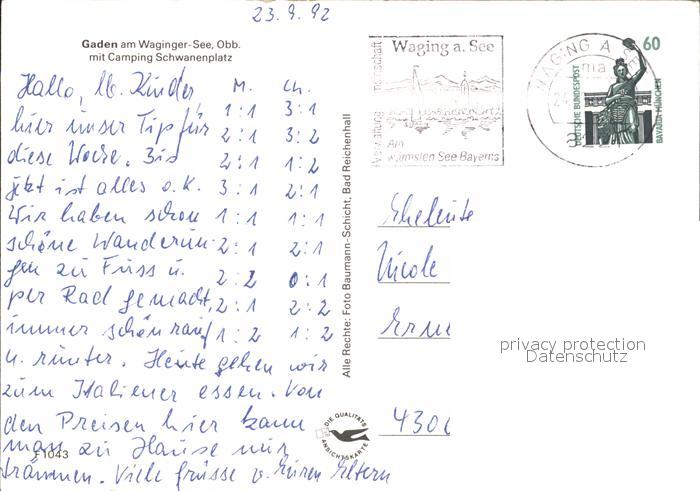 23.9.92
Gaden am Waginger-See, Obb.
mit Camping Schwanenplatz
Hallo, lb. Kinder M. Ch.
1:1 3:1
hier unser Tip für 2:1 3:2
diese Woche. Bis 2:1 1:2
jetzt ist alles o.K. 3:1 2:1
Wir haben schon 1:1 1:1
schöne Wanderun- 2:1 2:1
gen zu Fuss u. 2:2 0:1
per Rad gemacht, 2:1 2:2
immer schön rauf 1:2 1:2
u. runter. Heute gehen wir
zum Italiener essen. Von
den Preisen hier kann
man zu Hause nur
träumen. Viele Grüsse v. Euren Eltern
F1043
Alle Rechte: Foto Baumann-Schicht, Bad Reichenhall
DIE QUALITÄTS
ANSICHTSKARTE
Waging a. See
Am
wärmsten See Bayerns
WAGING A
DEUTSCHE BUNDESPOST
60
BAVARIA MÜNCHEN
Eheleute
Nicole
4300
privacy protection
Datenschutz